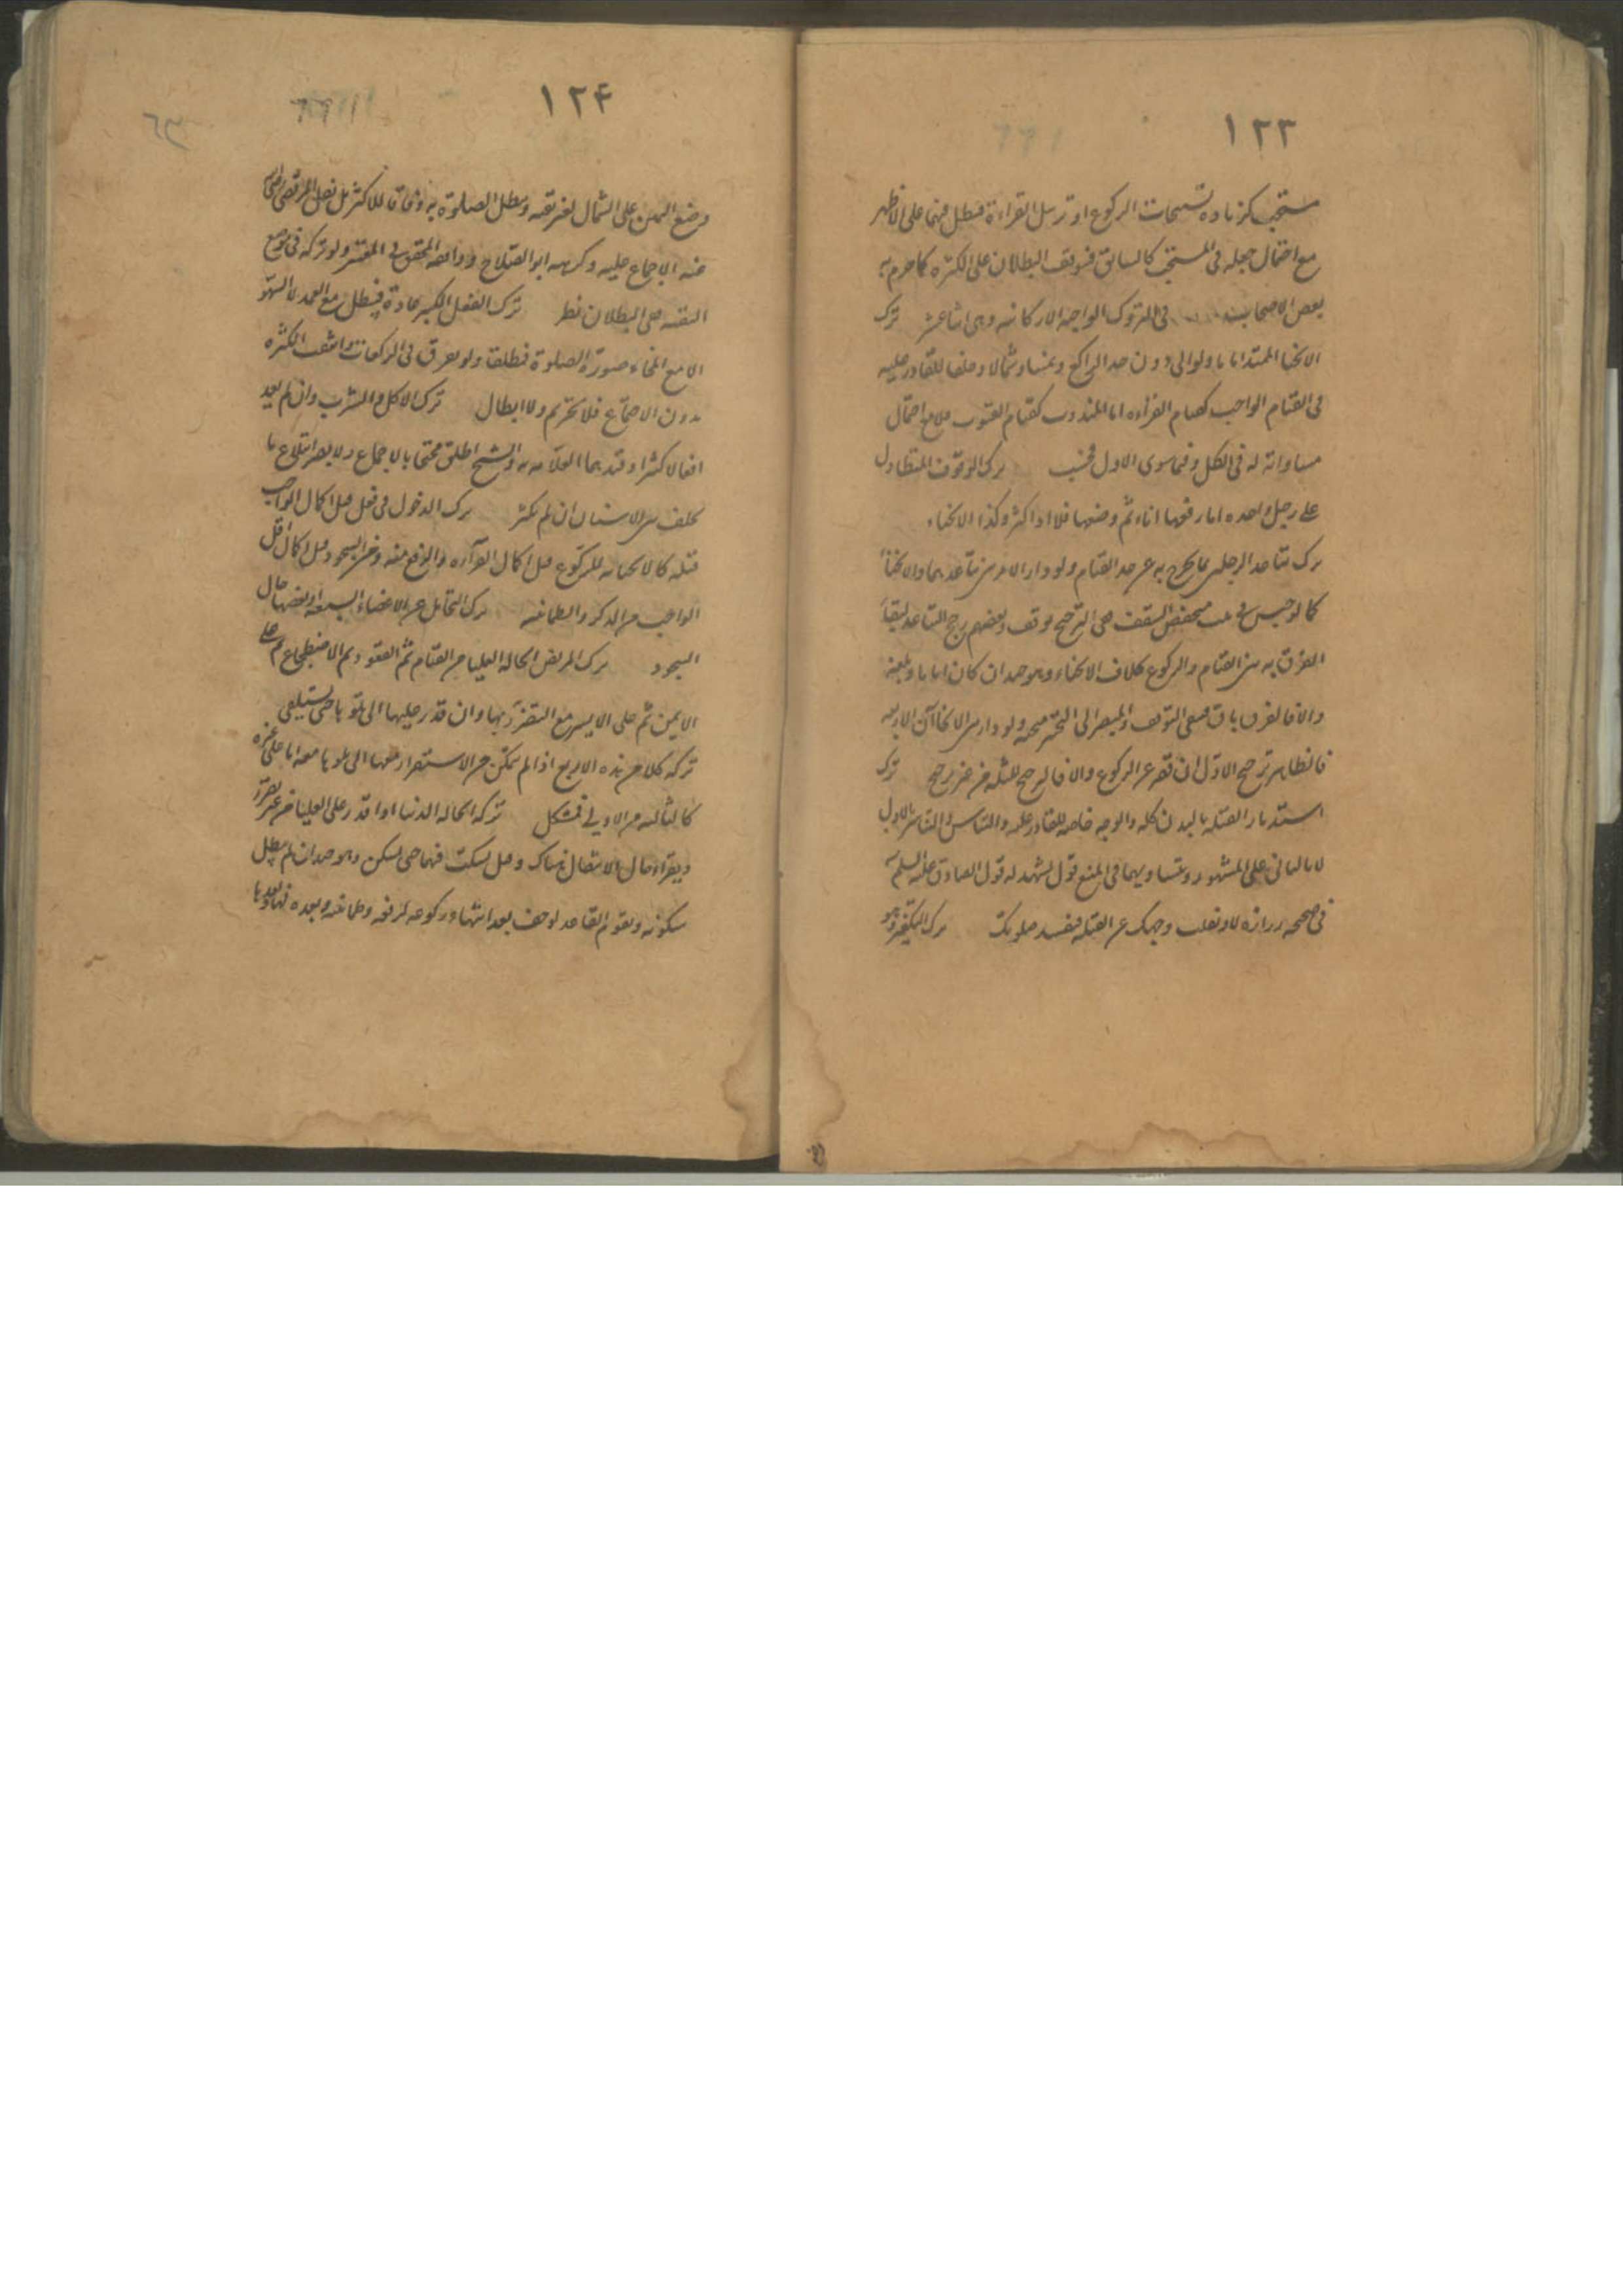 ١٢٣
مستحب كزياده تسبيحات الركوع او ترسل القراءة فتبطل فيهما على الاظهر
مع احتمال جعله فى المستحب كالسابق فيتوقف البطلان على الكثره كما جزم به
بعض الاصحاب فى التروك الواجبة الاركانيه وهى اثنا عشر ترك
الانحنا الممتد اماما ولو الى دون حد الراكع ويمينا وشمالا وخلفا للقادر عليه
فى القيام الواجب كقيام القراءه اما المندوب كقيام القنوت فلا مع احتمال
مساواته له فى الكل وفيما سوى الاول فحسب ترك الوقوف المتطاول
على رجل واحده اما رفعها اناء ثم وضعها فلا اذا كثر وكذا الانحناء
ترك تباعد الرجلين بما يخرج به عن حد القيام ولو دار الامر بين تباعدهما والانحنا
كما لو حبس فى بيت منخفض السقف ففى الترجيح توقف وبعضهم رجح التباعد لبقاء
الفرق به بين القيام والركوع بخلاف الانحناء وهو جيد ان كان اماما وبلغه
والا فالفرق باق فينبغى التوقف والمصير الى التخيير متجه ولو دار بين الانحناآت الاربعه
فالظاهر ترجيح الاول ان قصر عن الركوع والا فالترجيح للثلثه من غير ترجيح ترك
استدبار القبله بالبدن كله والوجه خاصه للقادر عليه والتياسر والتيامن بالاول
لا بالثانى على المشهور وبتساويهما فى المنع قول يشهد له قول الصادق عليه السلم
فى صحيحه زراره لا وتقلب وجهك عن القبله فتفسد صلوتك ترك التكفير وهو
١٢۴
وضع اليمين على الشمال لغير تقيه وتبطل الصلوة به وفاقا للاكثر بل نقل المرتضى رضى الله
عنه الاجماع عليه وكرهه ابو الصلاح ووافقه المحقق فى المعتبر ولو تركه فى موضع
التقيه ففى البطلان نظر ترك الفعل الكثير عادة فتبطل مع العمد لا السهو
الا مع انمحاء صورة الصلوة فمطلقا ولو تفرق فى الركعات وانتفت الكثره
بدون الاجتماع فلا تحريم ولا ابطال ترك الاكل والشرب وان لم يعد
افعالا كثيرا وقيدهما العلامه به والشيخ اطلق محتجا بالاجماع ولا يضر ابتلاع ما
تخلف بين الاسنان ان لم يكثر ترك الدخول فى فعل قبل اكمال الواجب
قبله كالانحناء للركوع قبل اكمال القراءه والرفع منه ومن السجود قبل اكمال اقل
الواجب من الذكر والطمانينه ترك التحامل عن الاعضاء السبعه او بعضها حال
السجود ترك المريض الحاله العليا من القيام ثم القعود ثم الاضطجاع على
الايمن ثم على الايسر مع التضرر بها وان قدر عليها الى تلوها حتى يستلقى
تركه كلا من هذه الاربع اذا لم يتمكن من الاستقرار معها الى تلوها معه اما على غيره
كالثالثه من الاولى فمشكل تركه الحاله الدنيا اذا قدر على العليا من غير تضرر
ويقراء حال الانتقال هناك وقيل يسكت فيهما حتى يسكن وهو جيد ان لم يطل
سكوته ويقوم القاعد لو خف بعد انتهاء ركوعه لرفعه وطمانينه وبعده فيها وبعدها